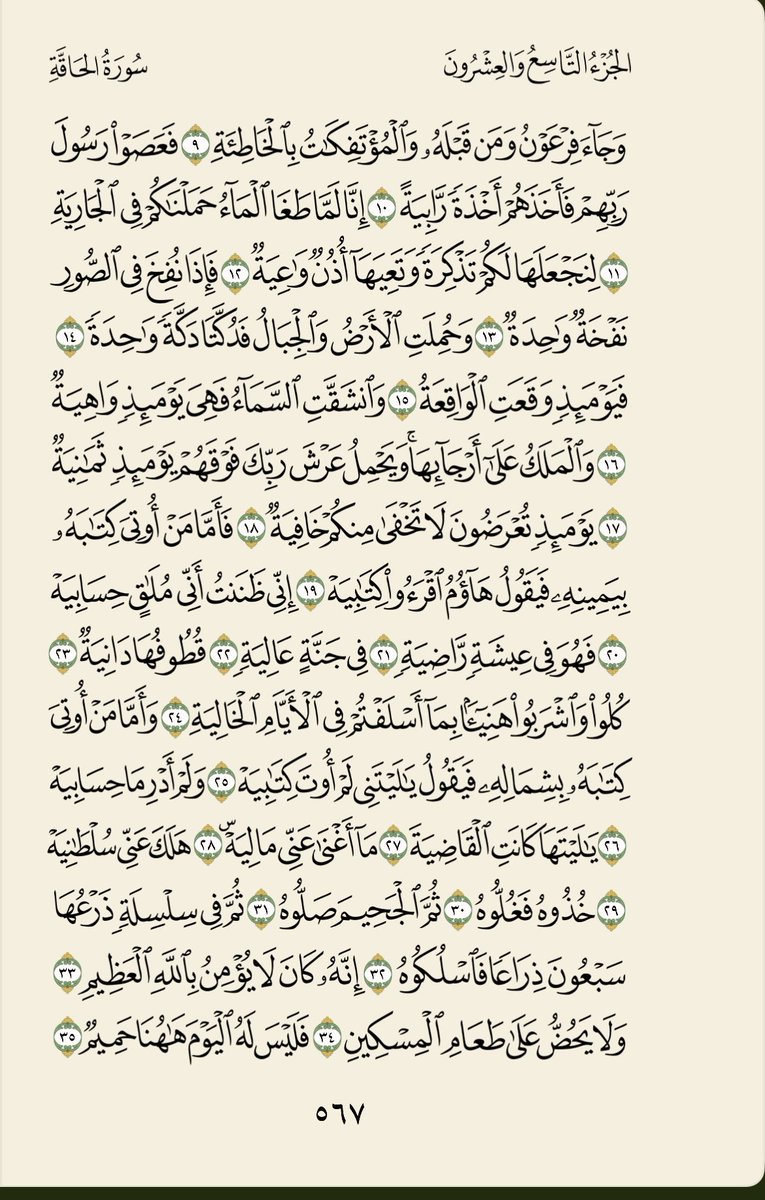 الجُزْءُ التَّاسِعُ وَالعِشْرُونَ سُورَةُ الحَاقَّةِ
وَجَآءَ فِرْعَوْنُ وَمَن قَبْلَهُۥ وَٱلْمُؤْتَفِكَٰتُ بِٱلْخَاطِئَةِ ٩ فَعَصَوْا۟ رَسُولَ
رَبِّهِمْ فَأَخَذَهُمْ أَخْذَةً رَّابِيَةً ١٠ إِنَّا لَمَّا طَغَا ٱلْمَآءُ حَمَلْنَٰكُمْ فِى ٱلْجَارِيَةِ
١١ لِنَجْعَلَهَا لَكُمْ تَذْكِرَةً وَتَعِيَهَآ أُذُنٌ وَٰعِيَةٌ ١٢ فَإِذَا نُفِخَ فِى ٱلصُّورِ
نَفْخَةٌ وَٰحِدَةٌ ١٣ وَحُمِلَتِ ٱلْأَرْضُ وَٱلْجِبَالُ فَدُكَّتَا دَكَّةً وَٰحِدَةً ١٤
فَيَوْمَئِذٍ وَقَعَتِ ٱلْوَاقِعَةُ ١٥ وَٱنشَقَّتِ ٱلسَّمَآءُ فَهِىَ يَوْمَئِذٍ وَاهِيَةٌ
١٦ وَٱلْمَلَكُ عَلَىٰٓ أَرْجَآئِهَا ۚ وَيَحْمِلُ عَرْشَ رَبِّكَ فَوْقَهُمْ يَوْمَئِذٍ ثَمَٰنِيَةٌ
١٧ يَوْمَئِذٍ تُعْرَضُونَ لَا تَخْفَىٰ مِنكُمْ خَافِيَةٌ ١٨ فَأَمَّا مَنْ أُوتِىَ كِتَٰبَهُۥ
بِيَمِينِهِۦ فَيَقُولُ هَآؤُمُ ٱقْرَءُوا۟ كِتَٰبِيَهْ ١٩ إِنِّى ظَنَنتُ أَنِّى مُلَٰقٍ حِسَابِيَهْ
٢٠ فَهُوَ فِى عِيشَةٍ رَّاضِيَةٍ ٢١ فِى جَنَّةٍ عَالِيَةٍ ٢٢ قُطُوفُهَا دَانِيَةٌ ٢٣
كُلُوا۟ وَٱشْرَبُوا۟ هَنِيٓـًٔۢا بِمَآ أَسْلَفْتُمْ فِى ٱلْأَيَّامِ ٱلْخَالِيَةِ ٢٤ وَأَمَّا مَنْ أُوتِىَ
كِتَٰبَهُۥ بِشِمَالِهِۦ فَيَقُولُ يَٰلَيْتَنِى لَمْ أُوتَ كِتَٰبِيَهْ ٢٥ وَلَمْ أَدْرِ مَا حِسَابِيَهْ
٢٦ يَٰلَيْتَهَا كَانَتِ ٱلْقَاضِيَةَ ٢٧ مَآ أَغْنَىٰ عَنِّى مَالِيَهْ ۜ ٢٨ هَلَكَ عَنِّى سُلْطَٰنِيَهْ
٢٩ خُذُوهُ فَغُلُّوهُ ٣٠ ثُمَّ ٱلْجَحِيمَ صَلُّوهُ ٣١ ثُمَّ فِى سِلْسِلَةٍ ذَرْعُهَا
سَبْعُونَ ذِرَاعًا فَٱسْلُكُوهُ ٣٢ إِنَّهُۥ كَانَ لَا يُؤْمِنُ بِٱللَّهِ ٱلْعَظِيمِ ٣٣
وَلَا يَحُضُّ عَلَىٰ طَعَامِ ٱلْمِسْكِينِ ٣٤ فَلَيْسَ لَهُ ٱلْيَوْمَ هَٰهُنَا حَمِيمٌ ٣٥
٥٦٧